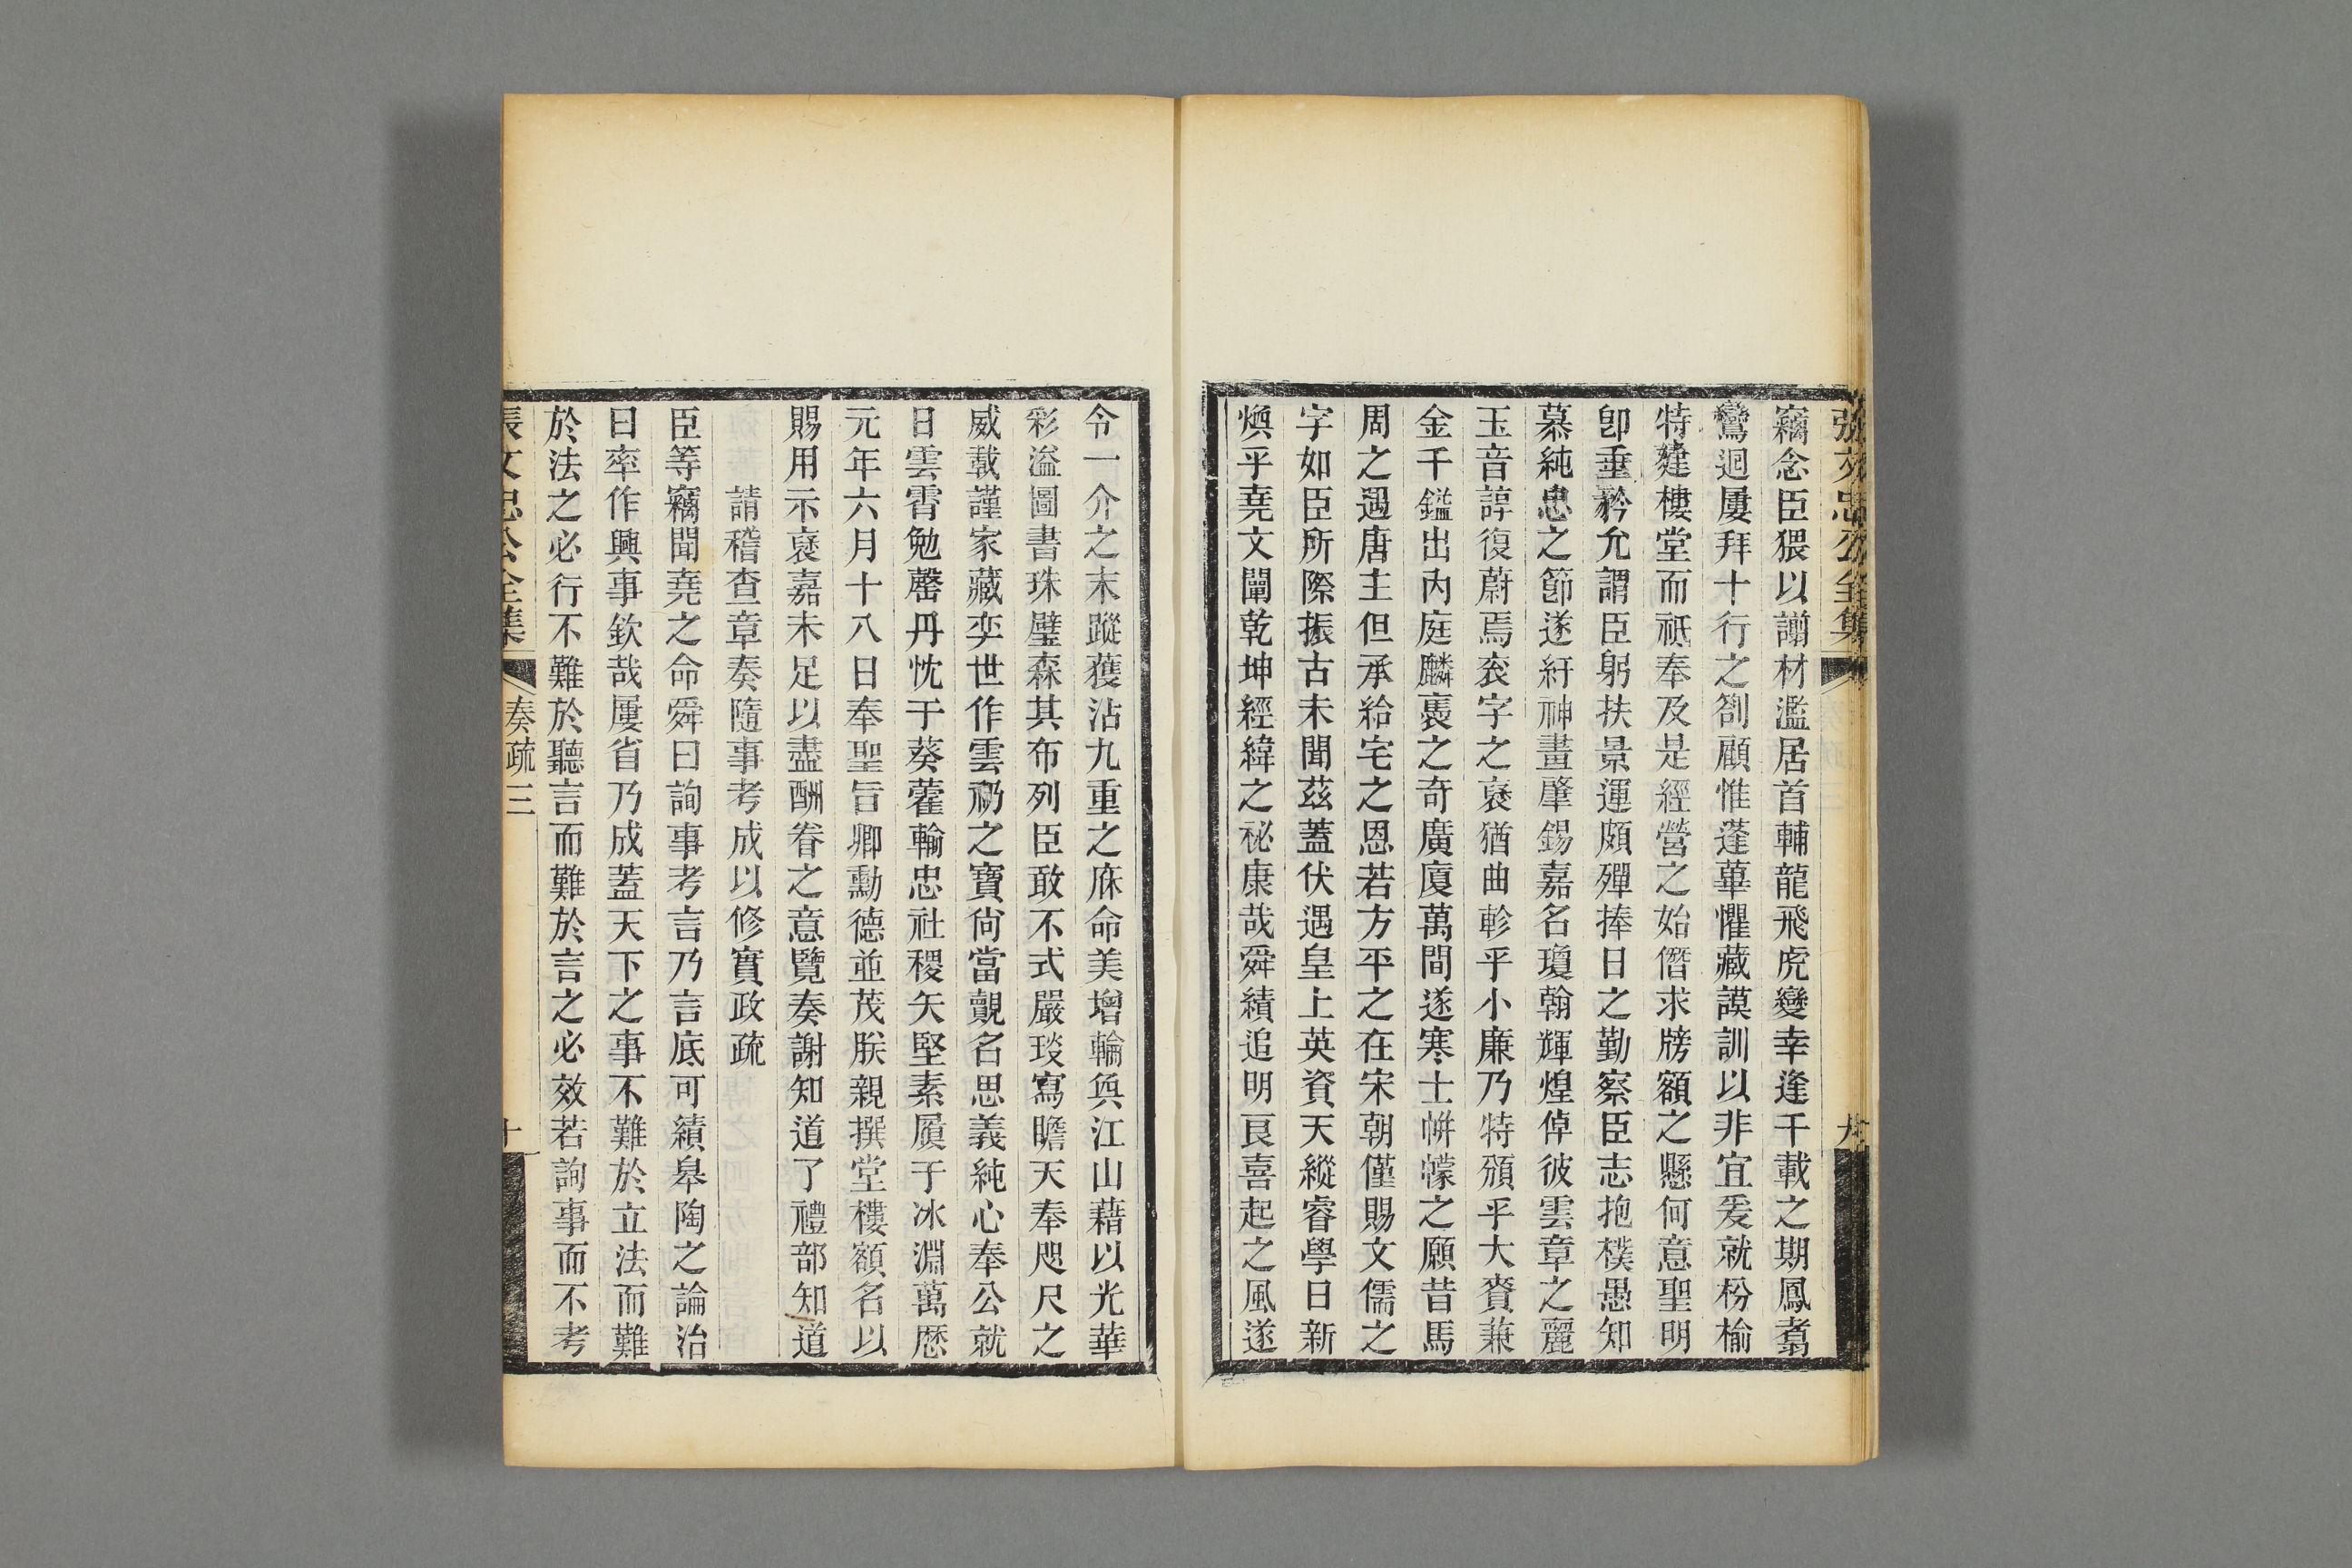 張文忠公全集
竊念臣猥以譾材濫居首輔龍飛虎變幸逢千載之期鳳翥
鸞迴屢拜十行之劄顧惟蓬蓽懼藏謨訓以非宜爰就枌榆
特建樓堂而祗奉及是經營之始僭求牓額之懸何意聖明
卽垂矜允謂臣躬扶景運頗殫捧日之勤察臣志抱樸愚知
慕純忠之節遂紆神畫肇錫嘉名瓊翰輝煌倬彼雲章之麗
玉音諄復蔚焉袞字之褒猶曲軫乎小廉乃特頒乎大賚兼
金千鎰出內庭麟褭之奇廣廈萬間遂寒士帡幪之願昔馬
周之遇唐主但承給宅之恩若方平之在宋朝僅賜文儒之
字如臣所際振古未聞茲蓋伏遇皇上英資天縱睿學日新
煥乎堯文闡乾坤經緯之祕康哉舜績追明良喜起之風遂
令一介之末蹤獲沾九重之庥命美增輪奐江山藉以光華
彩溢圖書珠璧森其布列臣敢不式嚴琰寫瞻天奉咫尺之
威載謹家藏奕世作雲礽之寶尙當覿名思義純心奉公就
日雲霄勉罄丹忱于葵藿輸忠社稷矢堅素履于冰淵萬歷
元年六月十八日奉聖旨卿勳德並茂朕親撰堂樓額名以
賜用示褒嘉未足以盡酬眷之意覽奏謝知道了禮部知道
請稽查章奏隨事考成以修實政疏
臣等竊聞堯之命舜曰詢事考言乃言底可績皋陶之論治
曰率作興事欽哉屢省乃成蓋天下之事不難於立法而難
於法之必行不難於聽言而難於言之必效若詢事而不考
張文忠公全集 奏疏三 十